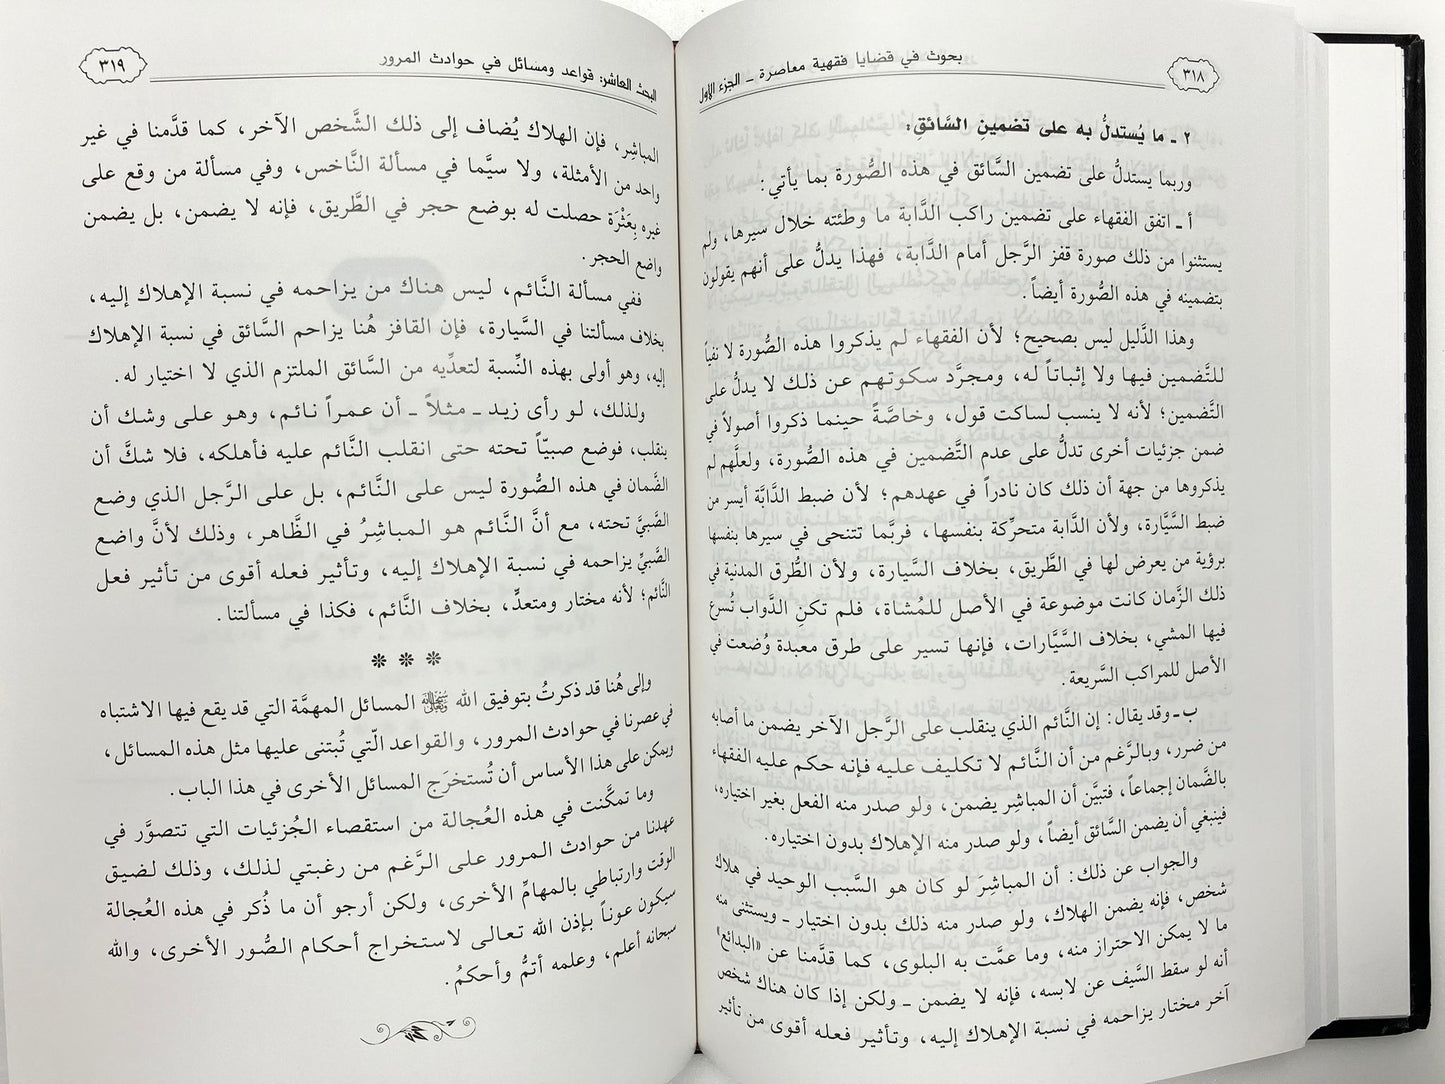 ٣١٨
بحوث في قضايا فقهية معاصرة ـ الجزء الأول
٢ ـ ما يُستدلُّ به على تضمينِ السَّائقِ:
وربما يستدلُّ على تضمين السَّائق في هذه الصُّورة بما يأتي:
أ ـ اتفق الفقهاء على تضمين راكب الدَّابة ما وطئته خلال سيرها، ولم
يستثنوا من ذلك صورة قفز الرَّجل أمام الدَّابة، فهذا يدلُّ على أنهم يقولون
بتضمينه في هذه الصُّورة أيضاً.
وهذا الدَّليل ليس بصحيح؛ لأن الفقهاء لم يذكروا هذه الصُّورة لا نفياً
للتَّضمين فيها ولا إثباتاً له، ومجرَّد سكوتهم عن ذلك لا يدلُّ على
التَّضمين؛ لأنه لا ينسب لساكت قول، وخاصَّةً حينما ذكروا أصولاً في
ضمن جزئيات أخرى تدلُّ على عدم التَّضمين في هذه الصُّورة، ولعلَّهم لم
يذكروها من جهة أن ذلك كان نادراً في عهدهم؛ لأن ضبط الدَّابَّة أيسر من
ضبط السَّيَّارة، ولأن الدَّابة متحرِّكة بنفسها، فربَّما تتنحى في سيرها بنفسها
برؤية من يعرض لها في الطَّريق، بخلاف السَّيارة، ولأن الطُّرق المدنية في
ذلك الزَّمان كانت موضوعة في الأصل للمُشاة، فلم تكنِ الدَّواب تُسرع
فيها المشي، بخلاف السَّيَّارات، فإنها تسير على طرق معبدة وُضعت في
الأصل للمراكب السَّريعة.
ب ـ وقد يقال: إن النَّائم الذي ينقلب على الرَّجل الآخر يضمن ما أصابه
من ضرر، وبالرَّغم من أن النَّائم لا تكليف عليه فإنه حكم عليه الفقهاء
بالضَّمان إجماعاً، فتبيَّن أن المباشِر يضمن، ولو صدر منه الفعل بغير اختياره،
فينبغي أن يضمن السَّائق أيضاً، ولو صدر منه الإهلاك بدون اختياره.
والجواب عن ذلك: أن المباشرَ لو كان هو السَّبب الوحيد في هلاك
شخص، فإنه يضمن الهلاك، ولو صدر منه ذلك بدون اختيار ـ ويستثنى منه
ما لا يمكن الاحتراز منه، وما عمَّت به البلوى، كما قدَّمنا عن «البدائع»
أنه لو سقط السَّيف عن لابسه، فإنه لا يضمن ـ ولكن إذا كان هناك شخص
آخر مختار يزاحمه في نسبة الإهلاك إليه، وتأثير فعله أقوى من تأثير
البحث العاشر: قواعد ومسائل في حوادث المرور
٣١٩
المباشِر، فإن الهلاك يُضاف إلى ذلك الشَّخص الآخر، كما قدَّمنا في غير
واحد من الأمثلة، ولا سيَّما في مسألة النَّاخس، وفي مسألة من وقع على
غيره بِعَثْرَة حصلت له بوضع حجر في الطَّريق، فإنه لا يضمن، بل يضمن
واضع الحجر.
ففي مسألة النَّائم، ليس هناك من يزاحمه في نسبة الإهلاك إليه،
بخلاف مسألتنا في السَّيارة، فإن القافز هُنا يزاحم السَّائق في نسبة الإهلاك
إليه، وهو أولى بهذه النِّسبة لتعدِّيه من السَّائق الملتزم الذي لا اختيار له.
ولذلك، لو رأى زيد ـ مثلاً ـ أن عمراً نائم، وهو على وشك أن
ينقلب، فوضع صبيّاً تحته حتى انقلب النَّائم عليه فأهلكه، فلا شكَّ أن
الضَّمان في هذه الصُّورة ليس على النَّائم، بل على الرَّجل الذي وضع
الصَّبيَّ تحته، مع أنَّ النَّائم هو المباشِرُ في الظَّاهر، وذلك لأنَّ واضع
الصَّبيِّ يزاحمه في نسبة الإهلاك إليه، وتأثير فعله أقوى من تأثير فعل
النَّائم؛ لأنه مختار ومتعدٍّ، بخلاف النَّائم، فكذا في مسألتنا.
* * *
وإلى هُنا قد ذكرتُ بتوفيق الله ﷾ المسائل المهمَّة التي قد يقع فيها الاشتباه
في عصرنا في حوادث المرور، والقواعد الّتي تُبتنى عليها مثل هذه المسائل،
ويمكن على هذا الأساس أن تُستخرَج المسائل الأخرى في هذا الباب.
وما تمكَّنت في هذه العُجالة من استقصاء الجُزئيات التي تتصوَّر في
عهدنا من حوادث المرور على الرَّغم من رغبتي لذلك، وذلك لضيق
الوقت وارتباطي بالمهامِّ الأخرى، ولكن أرجو أن ما ذُكر في هذه العُجالة
سيكون عوناً بإذن الله تعالى لاستخراج أحكام الصُّور الأخرى، والله
سبحانه أعلم، وعلمه أتمُّ وأحكمُ.